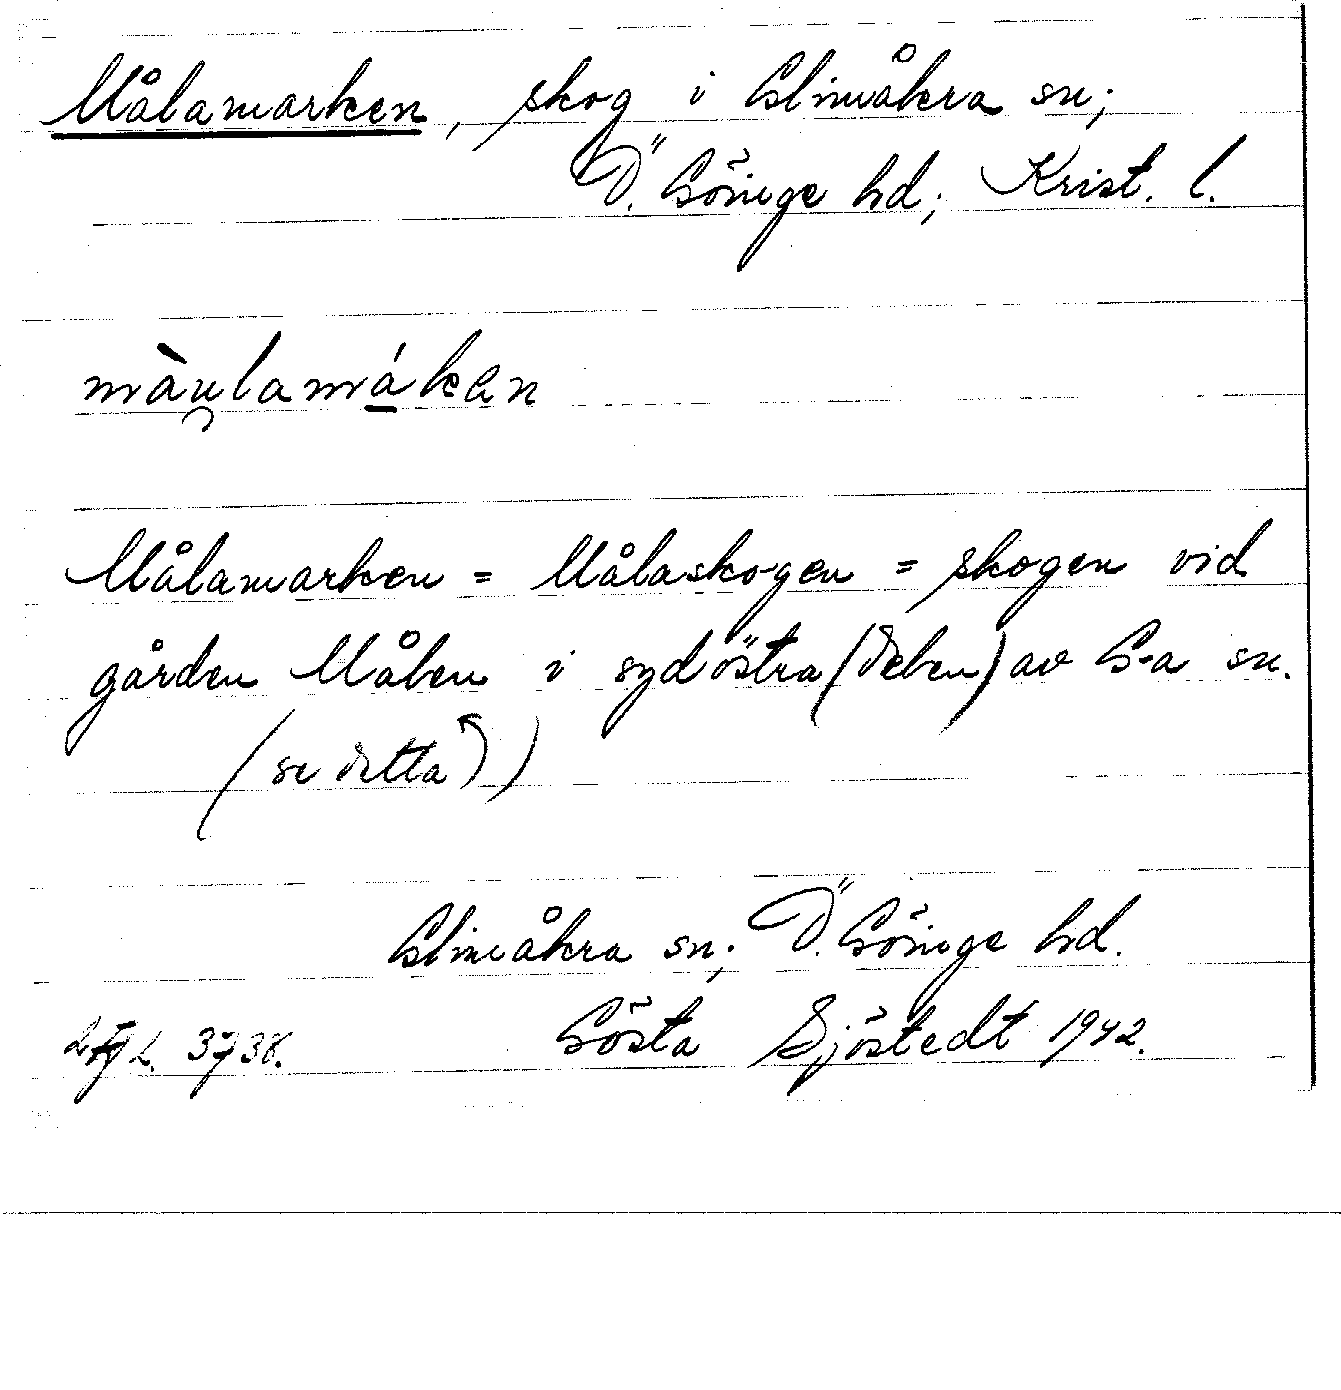 Målamarken, skog i Glimåkra sn;
Ö. Göinge hd; Krist. l.
màu̯lamákan
Målamarken = Målaskogen = skogen vid
gården Målen i sydöstra (delen) av G-a sn.
(se detta))
Glimåkra sn; Ö. Göinge hd.
3738. Gösta Sjöstedt 1942.